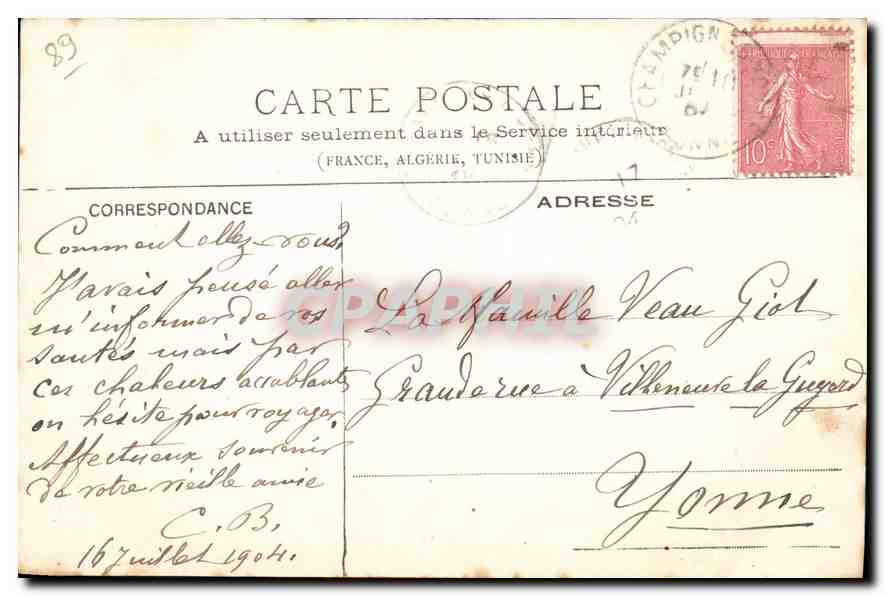 89
CHAMPIGN
RÉPUBLIQUE FRANÇAISE
10c
CARTE POSTALE
A utiliser seulement dans le Service intérieur
(FRANCE, ALGÉRIE, TUNISIE)
17
CORRESPONDANCE
Comment allez-vous?
J'avais pensé aller
m'informer de vos
santés mais par
ces chaleurs accablantes
on hésite pour voyager.
Affectueux souvenir
de votre vieille amie
C. B.
16 Juillet 1904.
ADRESSE
La Famille Veau Giot
Grande rue à Villeneuve la Guyard
Yonne
CPAPHIL